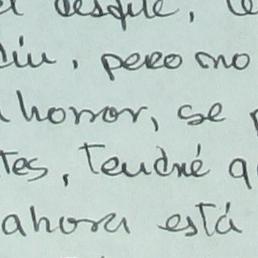 desque,
pero no
honor, se
tes, Tendré
ahora está